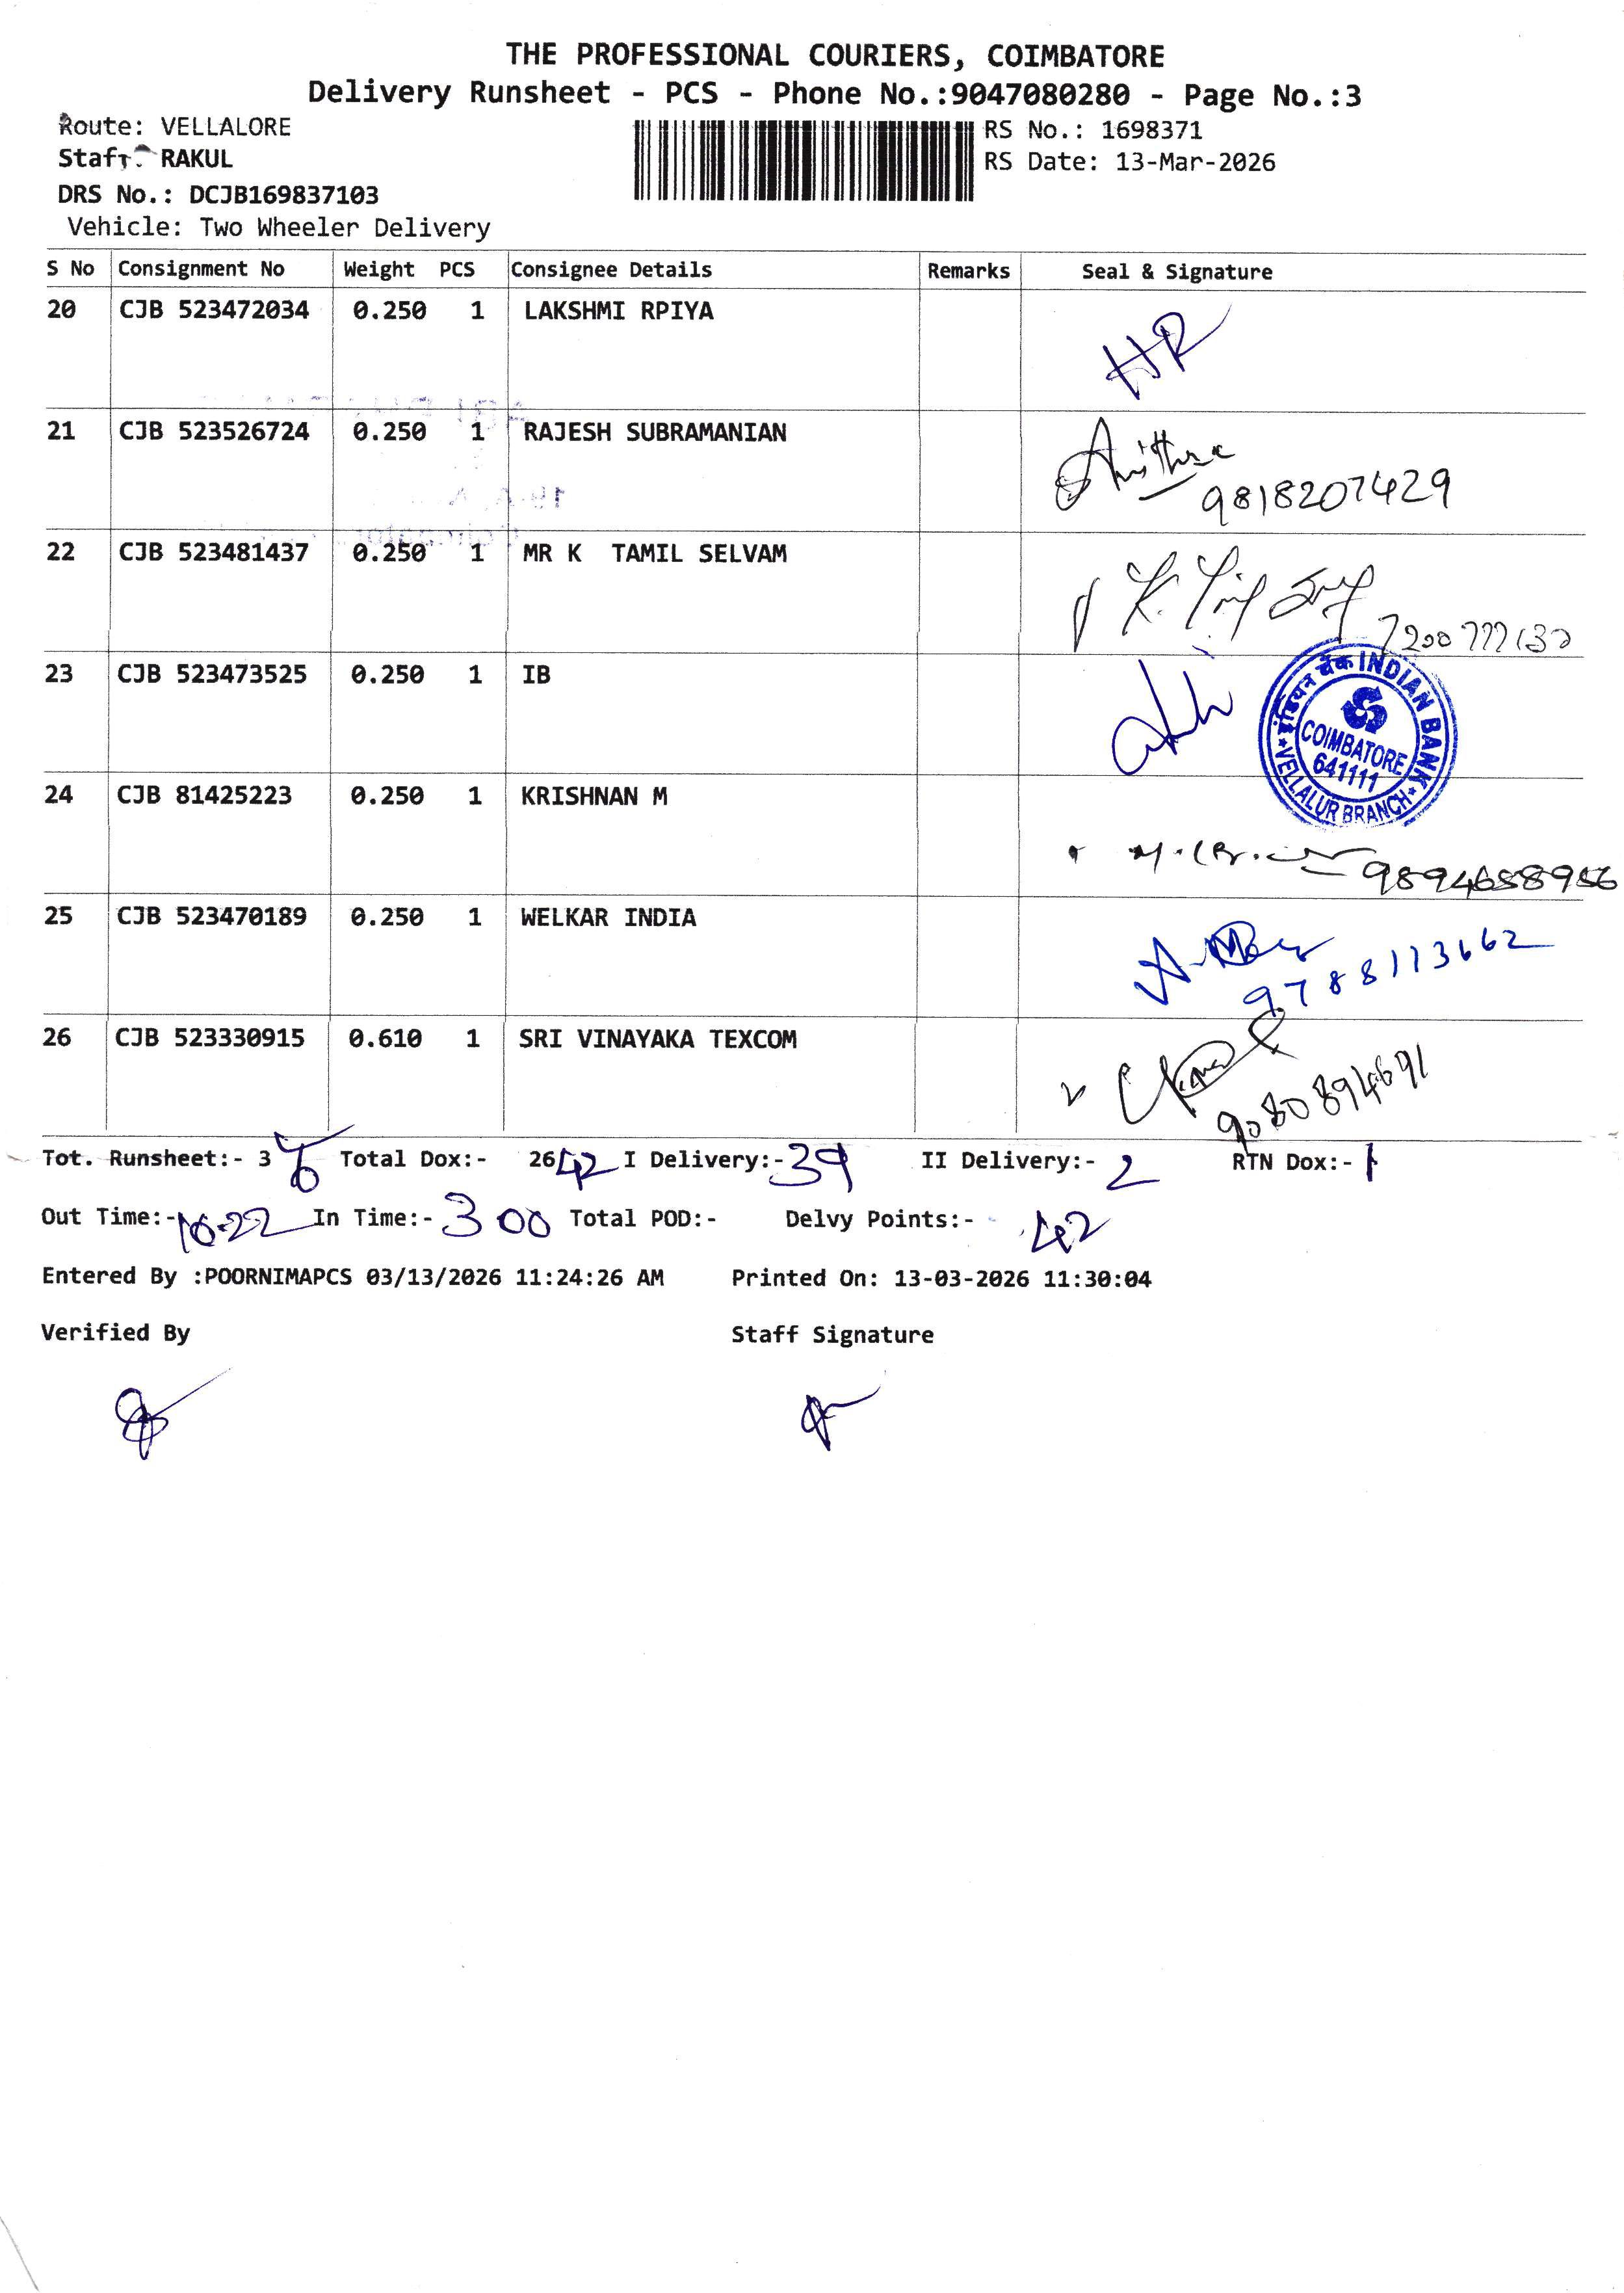 THE PROFESSIONAL COURIERS, COIMBATORE
Delivery Runsheet - PCS - Phone No.:9047080280 - Page No.:3
Route: VELLALORE
RS No.: 1698371
Staff: RAKUL
RS Date: 13-Mar-2026
DRS No.: DCJB169837103
Vehicle: Two Wheeler Delivery
S No Consignment No Weight PCS Consignee Details Remarks Seal & Signature
20 CJB 523472034 0.250 1 LAKSHMI RPIYA
HR
21 CJB 523526724 0.250 1 RAJESH SUBRAMANIAN
9818207429
22 CJB 523481437 0.250 1 MR K TAMIL SELVAM
23 CJB 523473525 0.250 1 IB
इंडियन बैंक INDIAN BANK
COIMBATORE
641111
VELLALUR BRANCH
24 CJB 81425223 0.250 1 KRISHNAN M
25 CJB 523470189 0.250 1 WELKAR INDIA
9788113662
26 CJB 523330915 0.610 1 SRI VINAYAKA TEXCOM
9080894691
Tot. Runsheet:- 3 Total Dox:- 26 42 I Delivery:- 39 II Delivery:- 2 RTN Dox:- 1
Out Time:- 10-22 In Time:- 3 00 Total POD:- Delvy Points:- 42
Entered By :POORNIMAPCS 03/13/2026 11:24:26 AM Printed On: 13-03-2026 11:30:04
Verified By Staff Signature